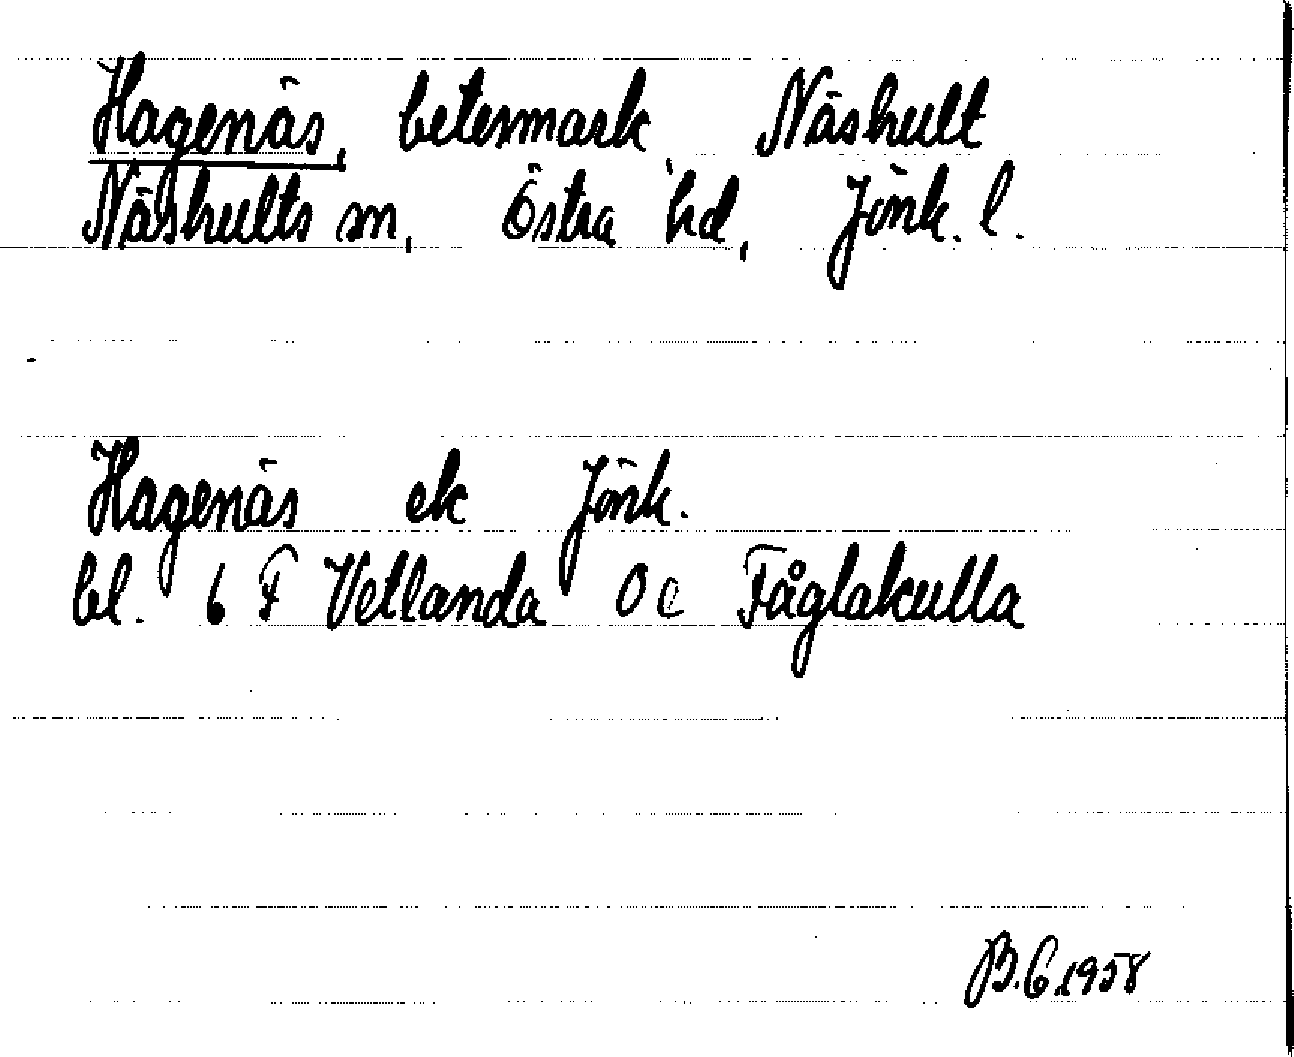 Hagenäs, betesmark, Näshult
Näshults sn, Östra hd, Jönk. l.
Hagenäs ek Jönk.
bl. 6 F Vetlanda 0 e Fåglakulla
B.G.1958